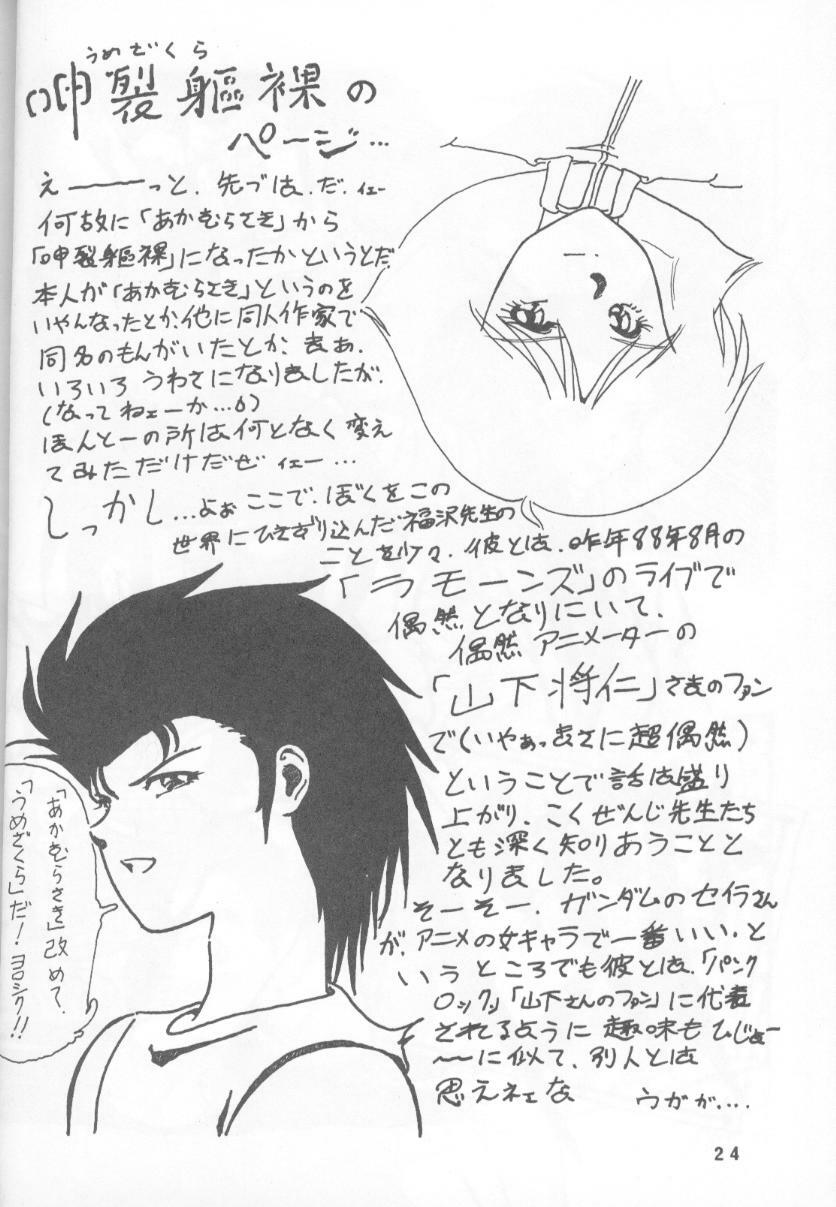 うめざくら
呻裂軀裸の
ページ…
えーーーっと、先づは、だ、イェー
何故に「あかむらさき」から
「呻裂軀裸」になったかというとだ、
本人が「あかむらさき」というのを
いやんなったとか、他に同人作家で
同名のもんがいたとか、まぁ、
いろいろうわさになりましたが、
(なってねェーか…)
ほんとーの所は何となく変え
てみただけだぜ イェー…
しっかし…よぉ ここで、ぼくをこの
世界にひきずり込んだ福沢先生の
ことを少々、彼とは、昨年88年8月の
「ラモーンズ」のライブで
偶然となりにいて、
偶然アニメーターの
「山下将仁」さまのファン
で(いやぁっまさに超偶然)
ということで話は盛り
上がり、こくぜんじ先生たち
とも深く知りあうことと
なりました。
そーそー、ガンダムのセイラさん
が、アニメの女キャラで一番いい、と
いうところでも彼とは、「パンク
ロック」「山下さんのファン」に代表
されるように趣味もひじょー
〜〜に似て、別人とは
思えネェな ウガガ....
「あかむらさき」改めて、
「うめざくら」だ!ヨロシク!!
24